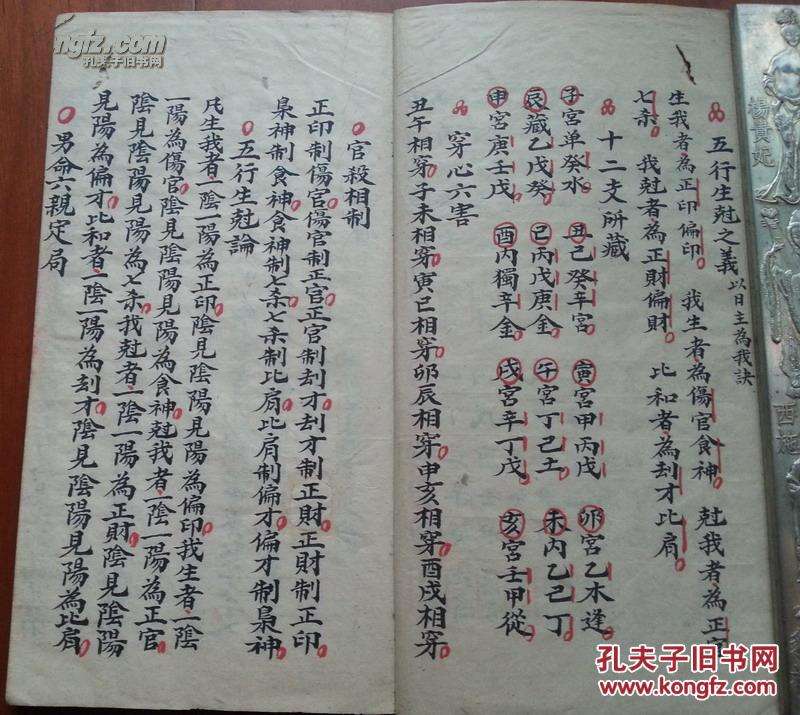 五行生尅之義以日主為我訣
生我者為正印偏印 我生者為傷官食神 尅我者為正官
七杀 我尅者為正財偏財 比和者為刦才比肩
十二支所藏
子宮单癸水 丑己癸辛宮 寅宮甲丙戊 卯宮乙木逢
辰藏乙戊癸 巳丙戊庚金 午宮丁己土 未丙乙己丁
申宮庚壬戊 酉內獨辛金 戌宮辛丁戊 亥宮壬甲從
穿心六害
丑午相穿子未相穿寅巳相穿卯辰相穿申亥相穿酉戌相穿
官殺相制
正印制傷官傷官制正官正官制刦才刦才制正財正財制正印
梟神制食神食神制七杀七杀制比肩比肩制偏才偏才制梟神
五行生尅論
凡生我者一陰一陽為正印陰見陰陽見陽為偏印我生者一陰
一陽為傷官陰見陰陽見陽為食神尅我者一陰一陽為正官
陰見陰陽見陽為七杀我尅者一陰一陽為正財陰見陰陽
見陽為偏才比和者一陰一陽為刦才陰見陰陽見陽為比肩
男命六親定局
楊貴妃
西施
ngfz.com
孔夫子旧书网
孔夫子旧书网
www.kongfz.com